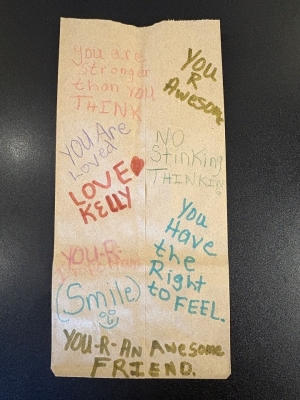 You are
stronger
than you
THINK
YOU
R
AWESOME
YOU ARE
Loved
LOVE
KELLY
NO
Stinking
THINKING
You
Have
the
Right
to FEEL.
YOU-R-
(Smile)
YOU-R-AN AWESOME
FRIEND.